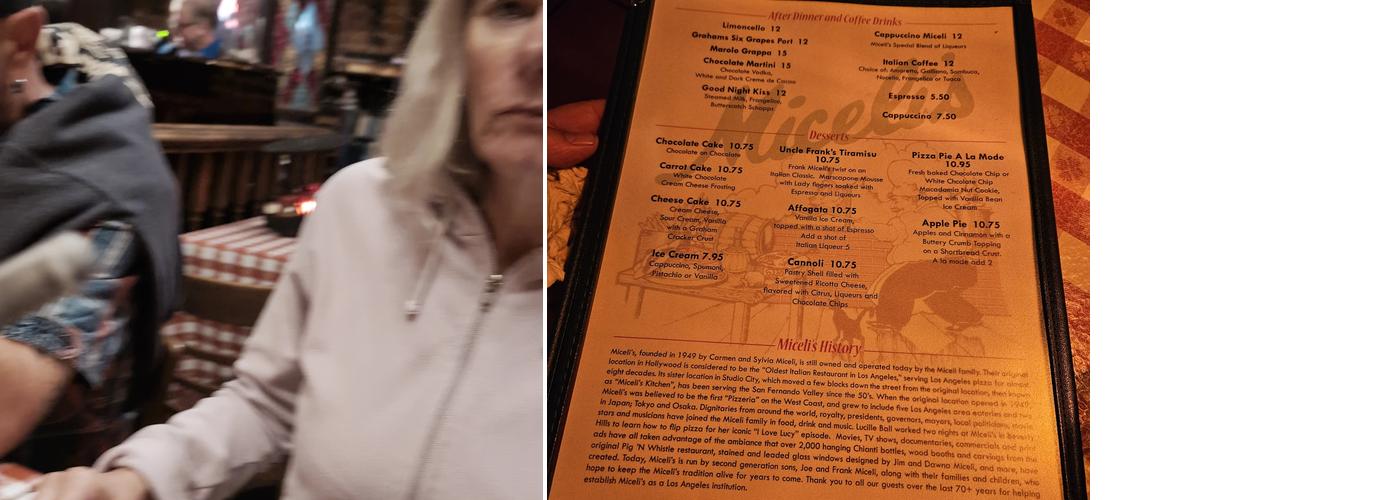 After Dinner and Coffee Drinks
Limoncello 12
Grahams Six Grapes Port 12
Marolo Grappa 15
Chocolate Martini 15
Chocolate Vodka,
White and Dark Creme de Cacao
Good Night Kiss 12
Steamed Milk, Frangelico,
Butterscotch Schapps
Cappuccino Miceli 12
Miceli's Special Blend of Liqueurs
Italian Coffee 12
Choice of: Amaretto, Galliano, Sambuca,
Nocello, Frangelico or Tuaca
Espresso 5.50
Cappuccino 7.50
Miceli's
Desserts
Chocolate Cake 10.75
Chocolate on Chocolate
Carrot Cake 10.75
White Chocolate
Cream Cheese Frosting
Cheese Cake 10.75
Cream Cheese,
Sour Cream, Vanilla
with a Graham
Cracker Crust
Ice Cream 7.95
Cappuccino, Spumoni,
Pistachio or Vanilla
Uncle Frank's Tiramisu
10.75
Frank Miceli's twist on an
Italian Classic. Marscapone Mousse
with Lady fingers soaked with
Espresso and Liqueurs
Affogata 10.75
Vanilla Ice Cream,
topped with a shot of Espresso
Add a shot of
Italian Liqueur 5
Cannoli 10.75
Pastry Shell filled with
Sweetened Ricotta Cheese,
flavored with Citrus, Liqueurs and
Chocolate Chips
Pizza Pie A La Mode
10.95
Fresh baked Chocolate Chip or
White Chocolate Chip
Macadamia Nut Cookie,
Topped with Vanilla Bean
Ice Cream
Apple Pie 10.75
Apples and Cinnamon with a
Buttery Crumb Topping
on a Shortbread Crust.
A la mode add 2
Miceli's History
Miceli's, founded in 1949 by Carmen and Sylvia Miceli, is still owned and operated today by the Miceli family. Their original
location in Hollywood is considered to be the "Oldest Italian Restaurant in Los Angeles," serving Los Angeles pizza for almost
eight decades. Its sister location in Studio City, which moved a few blocks down the street from the original location, then known
as "Miceli's Kitchen", has been serving the San Fernando Valley since the 50's. When the original location opened in 1949,
Miceli's was believed to be the first "Pizzeria" on the West Coast, and grew to include five Los Angeles area eateries and two
in Japan; Tokyo and Osaka. Dignitaries from around the world, royalty, presidents, governors, mayors, local politicians, movie
stars and musicians have joined the Miceli family in food, drink and music. Lucille Ball worked two nights at Miceli's in Beverly
Hills to learn how to flip pizza for her iconic "I Love Lucy" episode. Movies, TV shows, documentaries, commercials and print
ads have all taken advantage of the ambiance that over 2,000 hanging Chianti bottles, wood booths and carvings from the
original Pig 'N Whistle restaurant, stained and leaded glass windows designed by Jim and Dawna Miceli, and more, have
created. Today, Miceli's is run by second generation sons, Joe and Frank Miceli, along with their families and children, who
hope to keep the Miceli's tradition alive for years to come. Thank you to all our guests over the last 70+ years for helping
establish Miceli's as a Los Angeles institution.